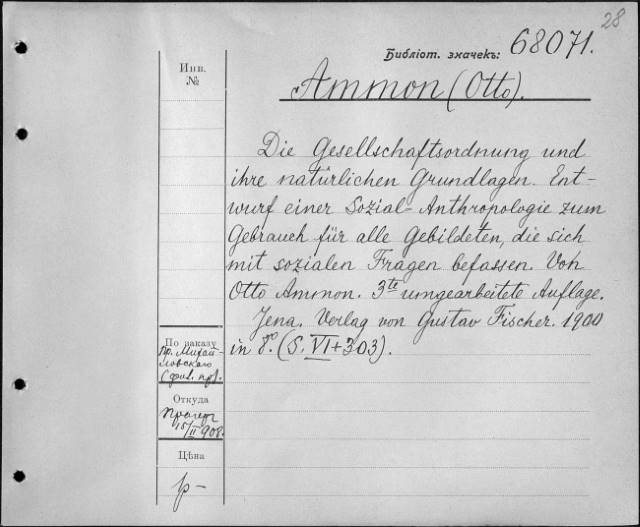 28
Библіот. значекъ: 68071.
Инв.
№
Ammon (Otto).
Die Gesellschaftsordnung und
ihre natürlichen Grundlagen. Ent-
wurf einer Sozial-Anthropologie zum
Gebrauch für alle Gebildeten, die sich
mit sozialen Fragen befassen. Von
Otto Ammon. 3te umgearbeitete Auflage.
Jena. Verlag von Gustav Fischer. 1900
in 8º. (S. VI+303).
По заказу
пр. Михай-
ловскаго
Откуда
15/II 908.
Цѣна
р-